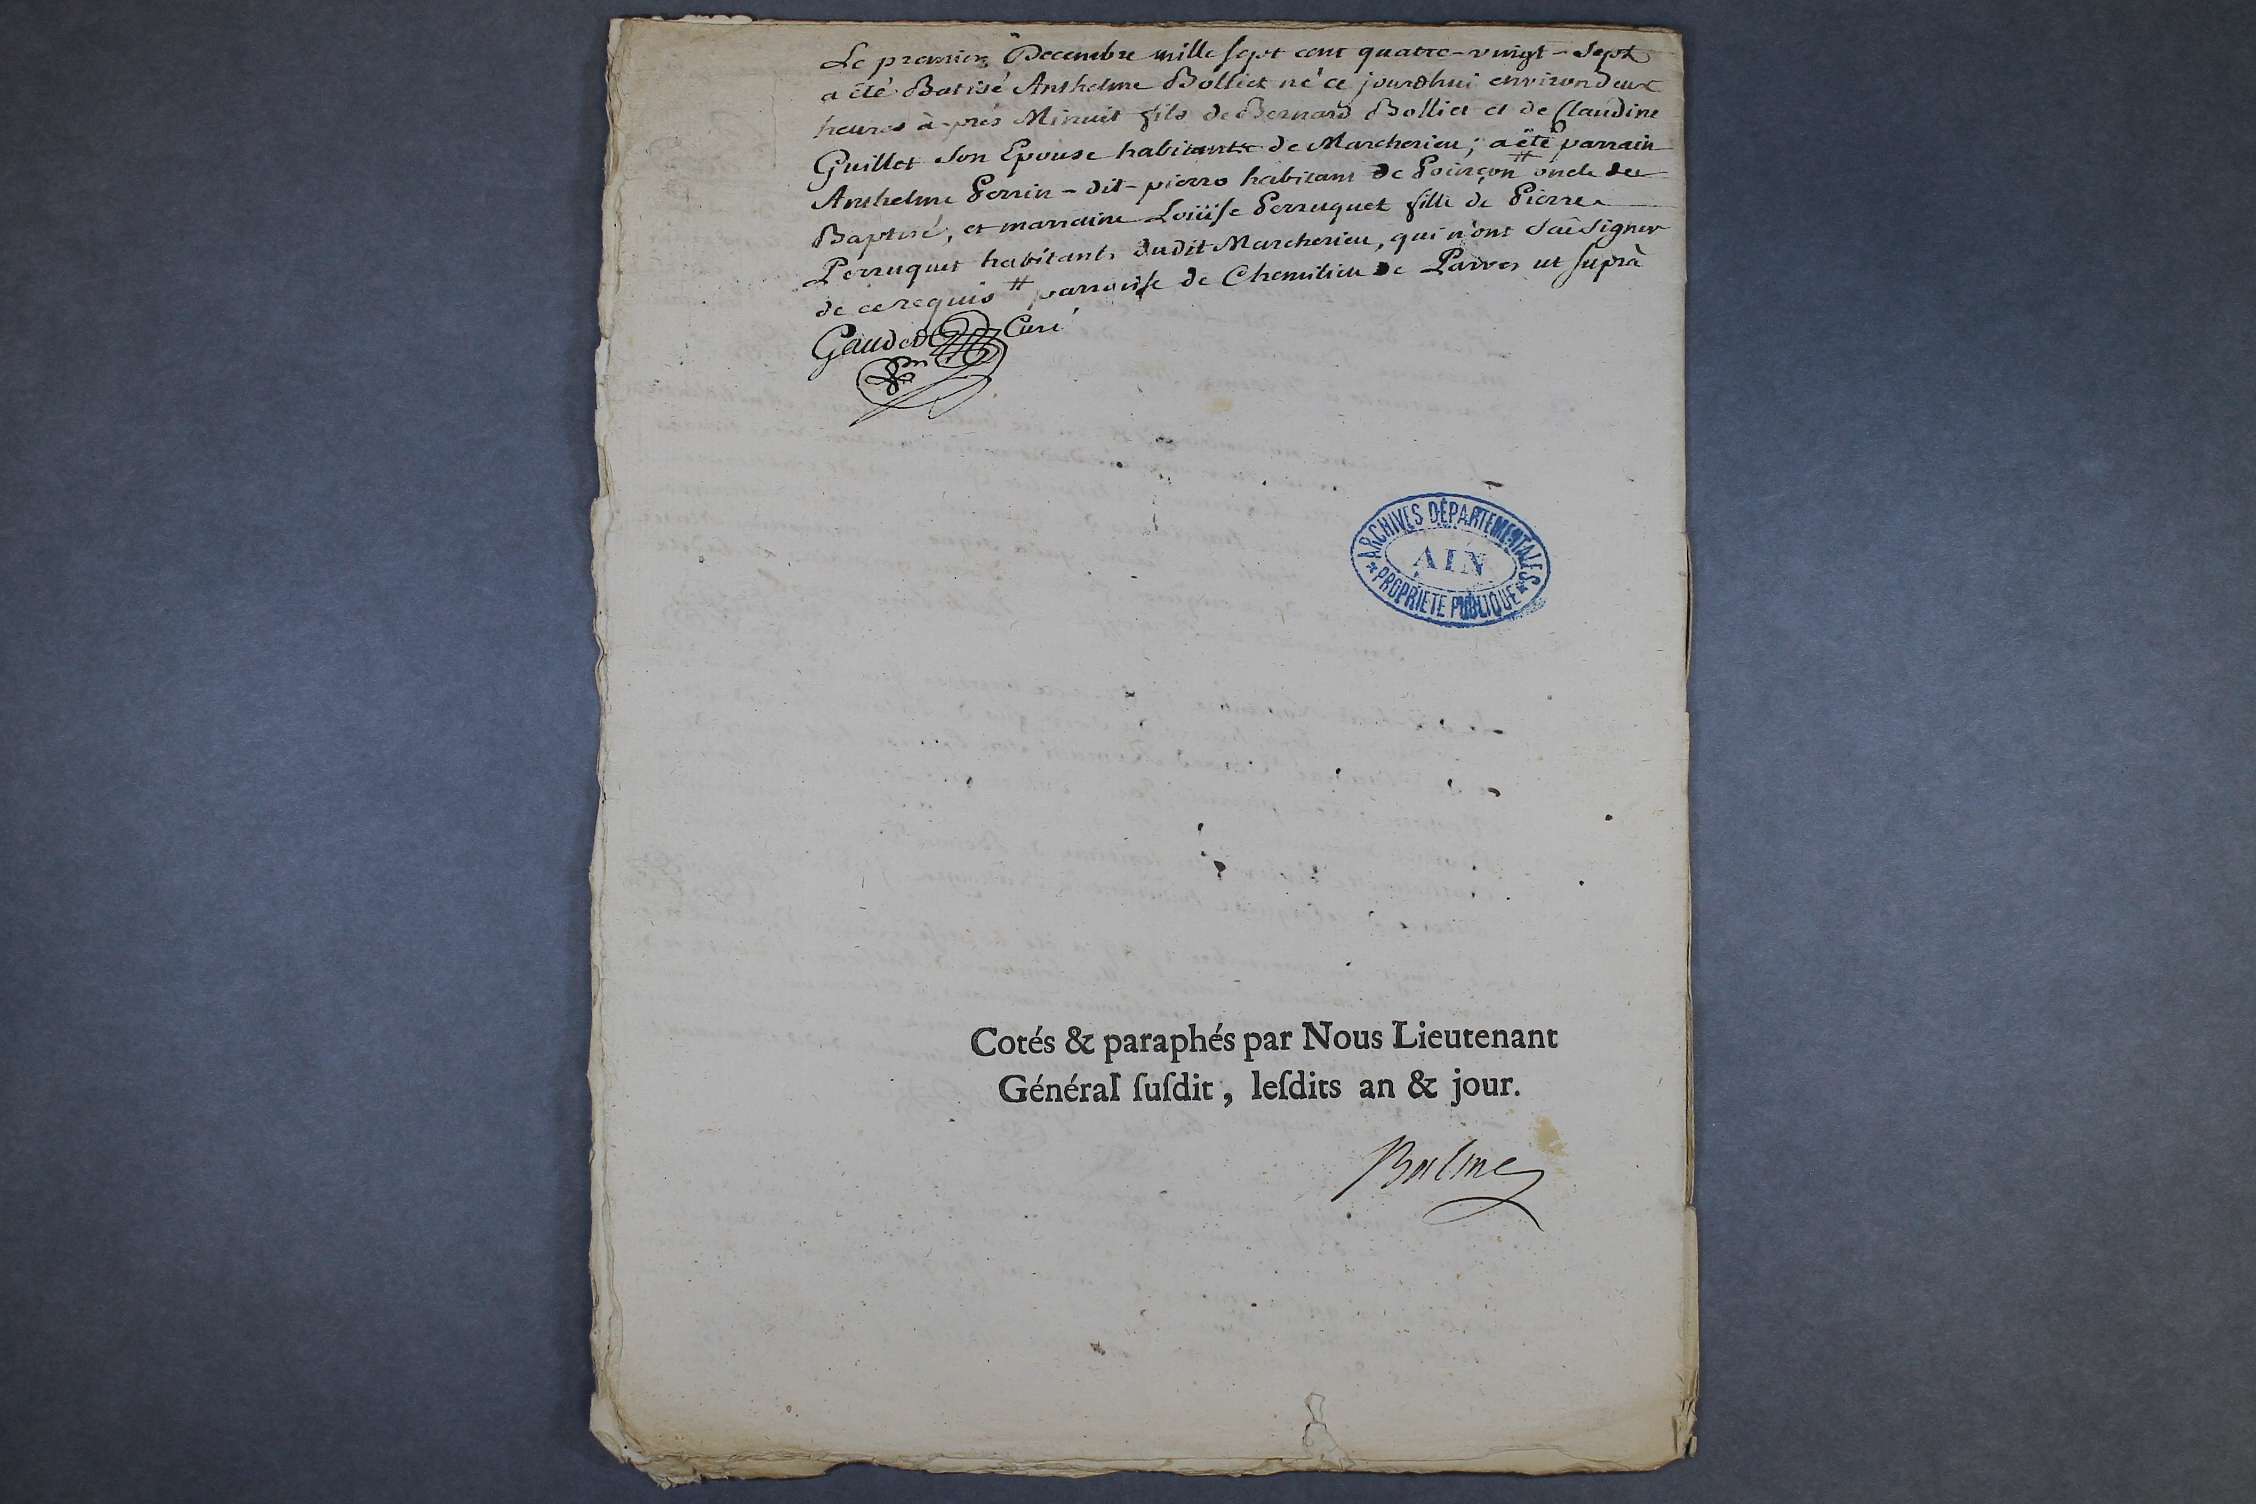 Le premier Decembre mille sept cent quatre-vingt-sept
a été Batisé Anthelme Bolliet né ce jourdhui environ deux
heures à-près Minuit fils de Bernard Bolliet et de Claudine
Guillet son Epouse habitants de Marcherieu; a été parrain
Anthelme Perrin-dit-pierro habitant de Poinçon # oncle du
Baptisé, et marraine Loüise Perruquet fille de Pierre
Perruquet habitants dudit Marcherieu, qui n'ont sai signer
de ce requis # parroisse de Chemilieu de Parves ut suprà
Gaudet Curé
ARCHIVES DÉPARTEMENTALES
AIN
PROPRIÉTÉ PUBLIQUE
Cotés & paraphés par Nous Lieutenant
Général ſuſdit, leſdits an & jour.
Balme